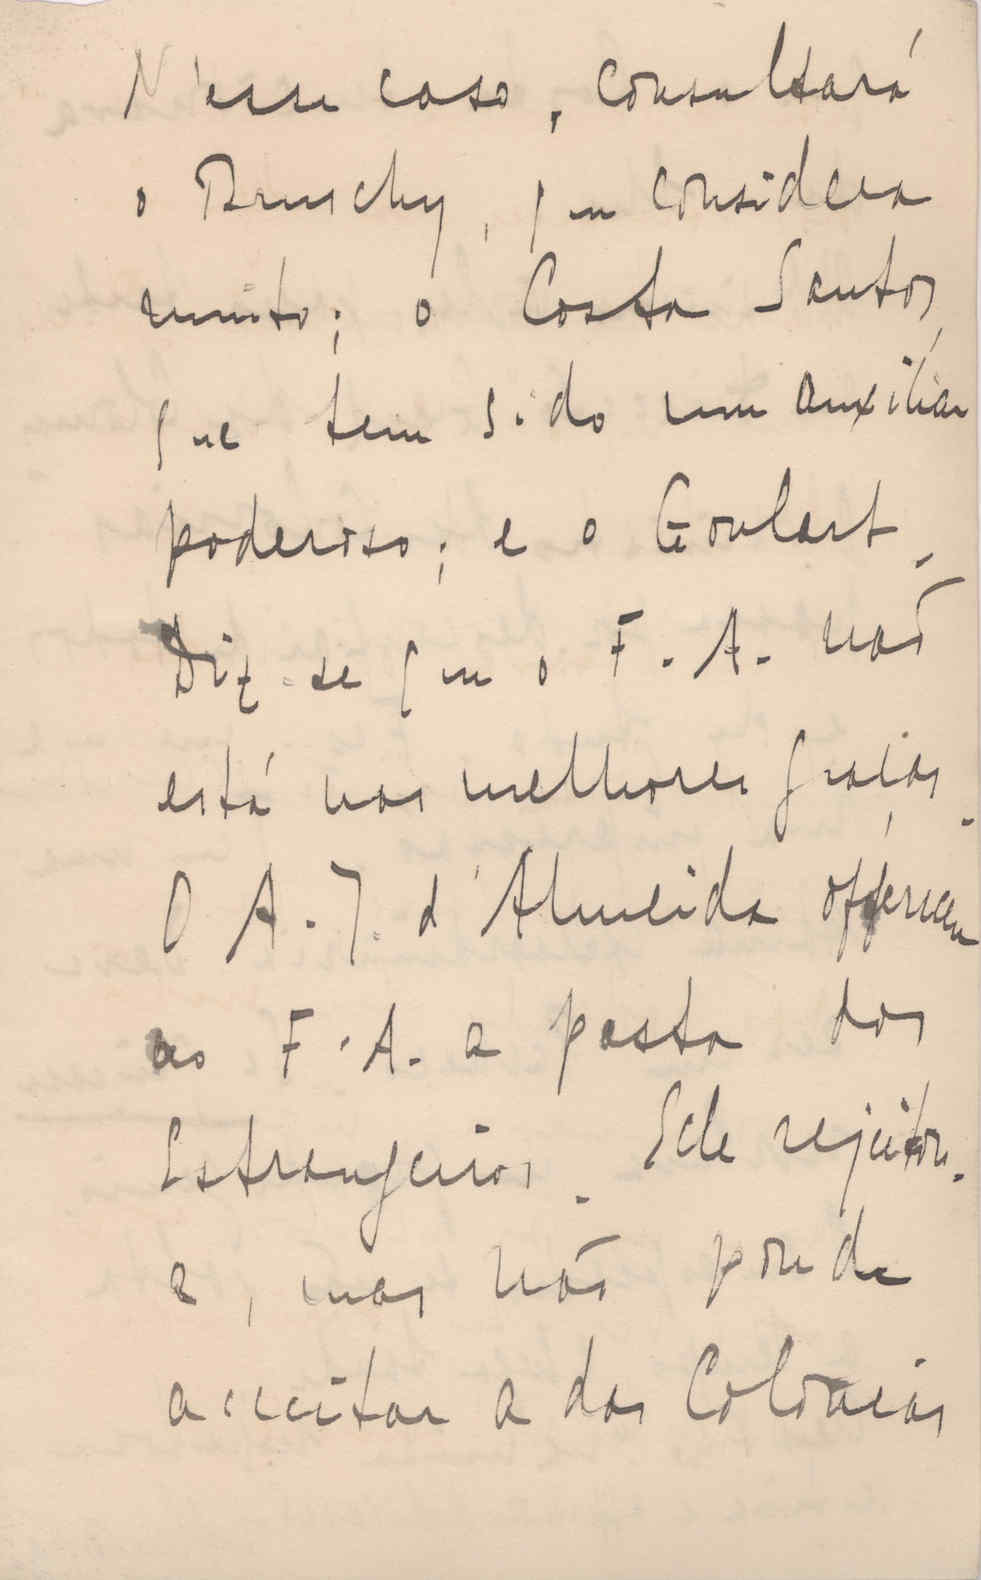 N'esse caso, consultará
o Bruschy, que considera
muito; o Costa Santos,
que tem sido um auxiliar
poderoso; e o Goulart.
Diz-se que o F. A. não
está nas melhores graças.
O A. J. d'Almeida offereceu
ao F. A. a pasta dos
Estrangeiros. Elle rejeitou-
a, mas não poude
acceitar a das Colonias